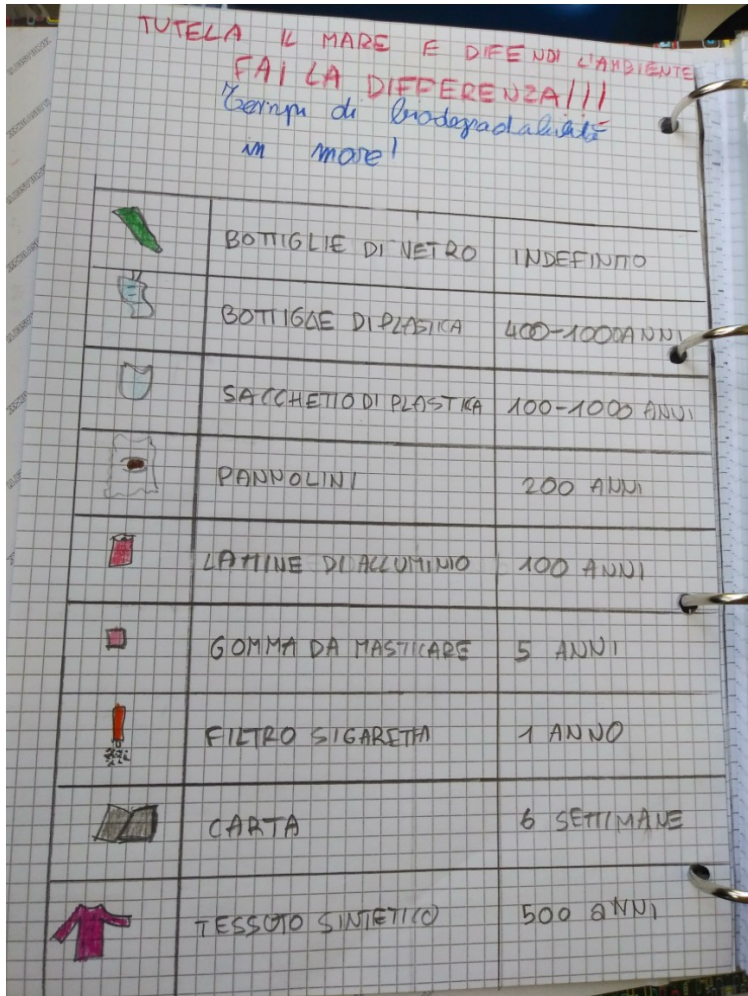 TUTELA IL MARE E DIFENDI L'AMBIENTE
FAI LA DIFFERENZA!!!
Tempi di biodegradabilità
in mare!
BOTTIGLIE DI VETRO INDEFINITO
BOTTIGLIE DI PLASTICA 400-1000 ANNI
SACCHETTO DI PLASTICA 100-1000 ANNI
PANNOLINI 200 ANNI
LATTINE DI ALLUMINIO 100 ANNI
GOMMA DA MASTICARE 5 ANNI
FILTRO SIGARETTA 1 ANNO
CARTA 6 SETTIMANE
TESSUTO SINTETICO 500 ANNI